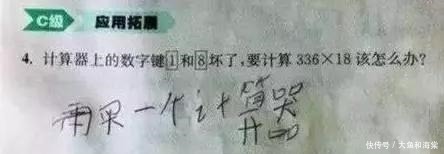 C级 应用拓展
4. 计算器上的数字键1和8坏了,要计算 336×18 该怎么办?
再买一个计算器
快传号 / 大鱼和海棠